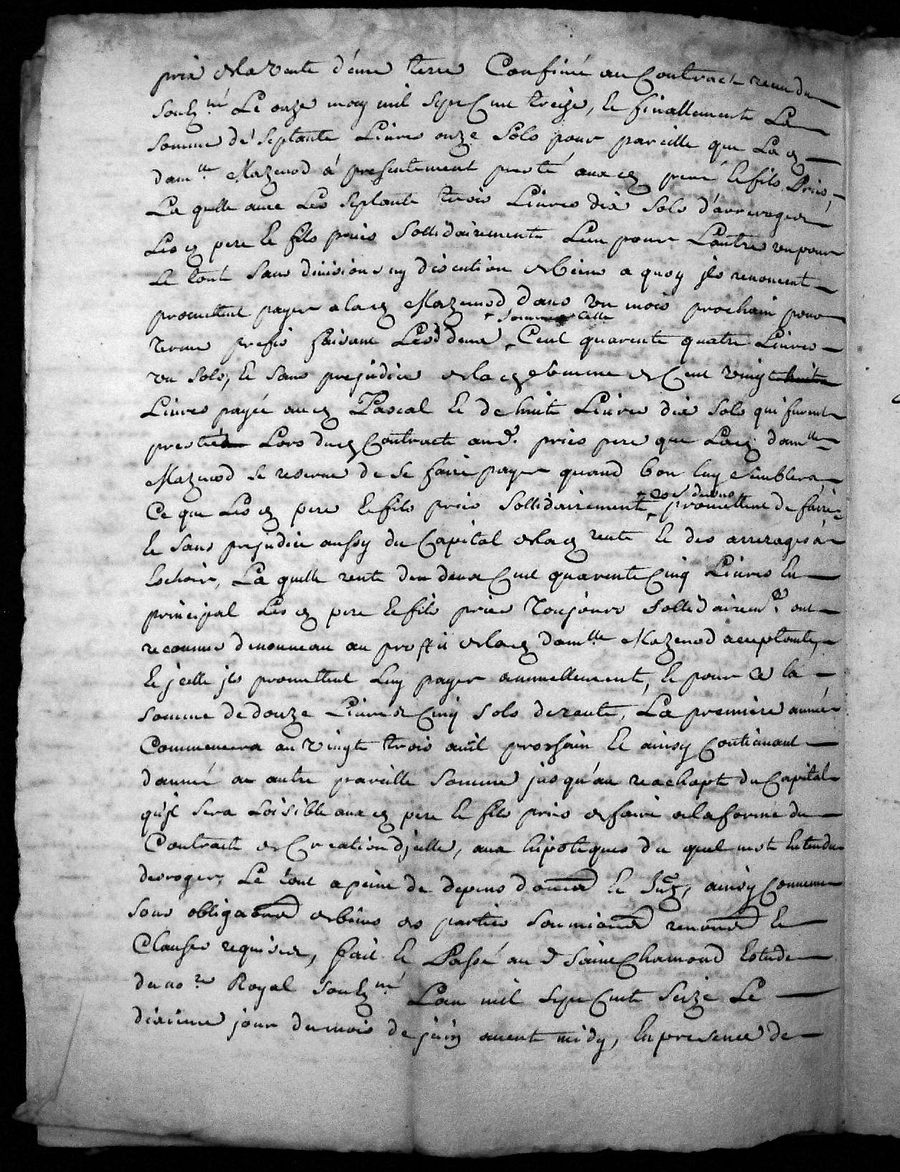 prix de la vente d'une terre Confiné au Contract receu du
Soubz.né Le onze may mil sept Cent treize, Et finallement La
Somme de Septante Livre onze Solz pour pareille que La d.
dam.lle Mazenod à presentement presté aux d. pere et fils Prier,
La quelle avec Les septante trois Livres dix Solz d'arrerages
Les d. pere Et fils prier Sollidairement Lun pour Lautre un pour
Le tout Sans division ny discution de biens a quoy jls renoncent
promettent payer a la d. Mazenod dans un mois prochain pour
terme prefix faisant Lesd. deux + sommes Celle Cent quarente quatre Livres
un Solz, Et sans prejudice de la d. somme de Cent vingt huit
Livres payée au d. Pascal Et de huit Livres dix Solz qui furent
prestés Lors dud. Contract aud. prier pere que La d. dam.lle
Mazenod se reserve de se faire payer quand bon luy semblera
Ce que Les d. pere Et fils prier Sollidairement promettent de faire
Et sans prejudice aussy du Capital de la d. rente Et des arrerages à
Eschoir, La quelle rente de deux Cent quarente Cinq Livres En
principal Les d. pere Et fils prier Toujours Sollidairem.t ont
reconnue de nouveau au proffit de la d. dam.lle Mazenod acceptante,
Et jcelle jls promettent Luy payer annuellement, Et pour Ce la
Somme de douze Livres Cinq Solz de rente, La premiere année
Commencera au vingt trois avril prochain Et ainsy Continuant
d'année en autre pareille Somme jusqu'au reachapt du Capital
qu'jl sera Loisible aux d. pere Et fils prier de faire a la forme du
Contract de Creation d'jcelle, aux hipoteques du quel n'est Entendu
desroger, Le tout a peine de depens dom. Et Int., ainsy Convenu
sous obligaon de biens des parties soumissions renon. Et
Clauses requises, fait Et Passé au d. Saint Chamond Estude
du no.re Royal Soubz.né Lan mil sept Cent Seize Le
dixieme jour du mois de juin avant midy, En presence de